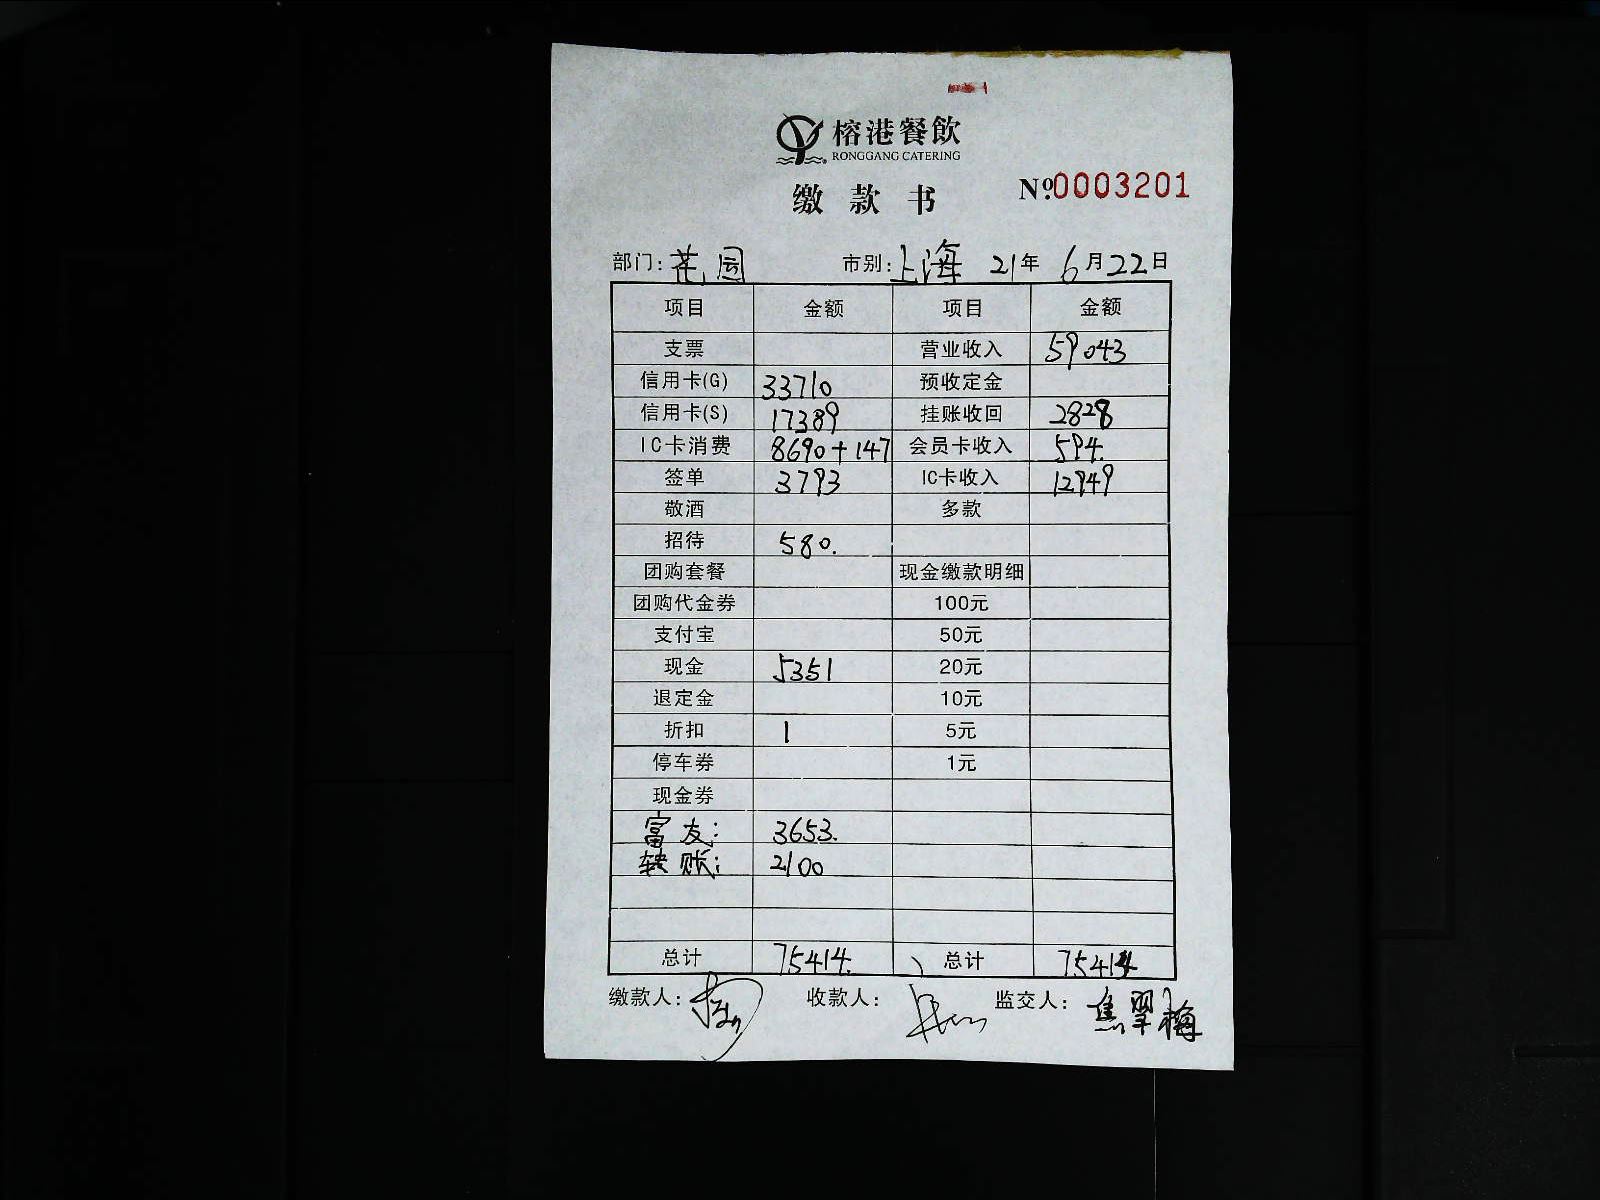 榕港餐飲
RONGGANG CATERING
缴款书 Nº.0003201
部门:花园 市别:上海 21年6月22日
项目 金额 项目 金额
支票 营业收入 59043
信用卡(G) 33710 预收定金
信用卡(S) 17389 挂账收回 2828
IC卡消费 8690+147 会员卡收入 594.
签单 3793 IC卡收入 12949
敬酒 多款
招待 580.
团购套餐 现金缴款明细
团购代金券 100元
支付宝 50元
现金 5351 20元
退定金 10元
折扣 1 5元
停车券 1元
现金券
富友: 3653.
转账: 2100
总计 75414. 总计 75414
缴款人: 收款人: 监交人: 焦翠梅